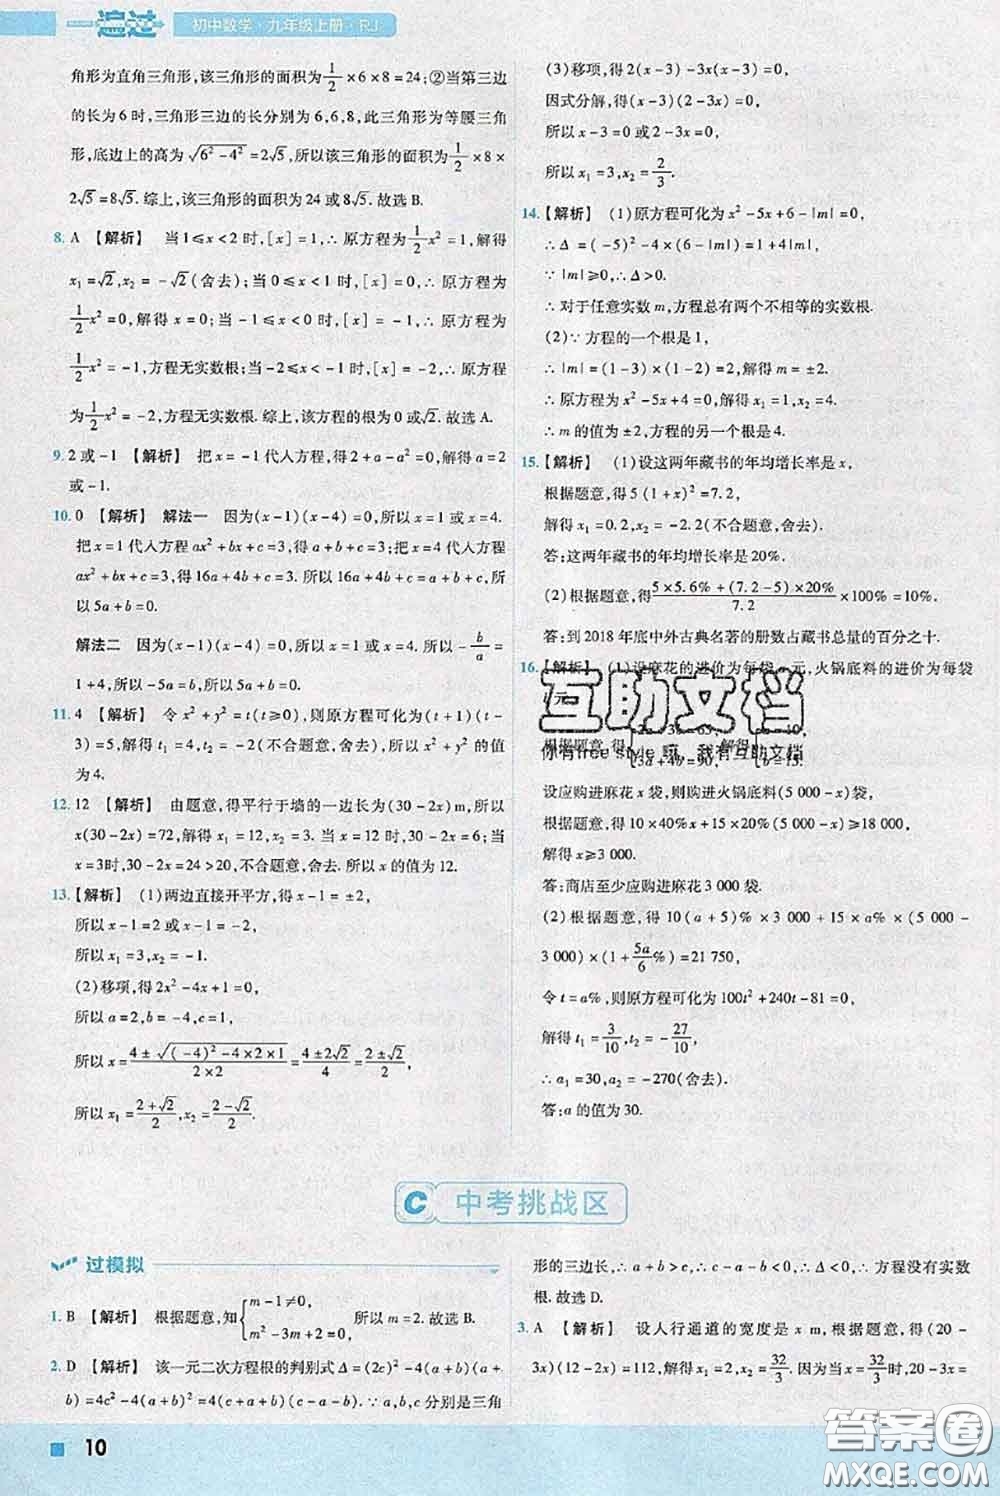 一遍过 初中数学·九年级上册·RJ
角形为直角三角形,该三角形的面积为1/2×6×8=24;②当第三边
的长为6时,三角形三边的长分别为6,6,8,此三角形为等腰三角
形,底边上的高为√(6²-4²)=2√5,所以该三角形的面积为1/2×8×
2√5=8√5.综上,该三角形的面积为24或8√5.故选B.
8. A 【解析】 当1≤x<2时,[x]=1,∴原方程为1/2x²=1,解得
x₁=√2,x₂=-√2(舍去);当0≤x<1时,[x]=0,∴原方程为
1/2x²=0,解得x=0;当-1≤x<0时,[x]=-1,∴原方程为
1/2x²=-1,方程无实数根;当-2≤x<-1时,[x]=-2,∴原方程
为1/2x²=-2,方程无实数根.综上,该方程的根为0或√2.故选A.
9. 2或-1 【解析】 把x=-1代入方程,得2+a-a²=0,解得a=2
或-1.
10. 0 【解析】 解法一 因为(x-1)(x-4)=0,所以x=1或x=4.
把x=1代入方程ax²+bx+c=3,得a+b+c=3;把x=4代入方程
ax²+bx+c=3,得16a+4b+c=3.所以16a+4b+c=a+b+c,
所以5a+b=0.
解法二 因为(x-1)(x-4)=0,所以x=1或x=4.所以-b/a=
1+4,所以-5a=b,所以5a+b=0.
11. 4 【解析】 令x²+y²=t(t≥0),则原方程可化为(t+1)(t-
3)=5,解得t₁=4,t₂=-2(不合题意,舍去).所以x²+y²的值
为4.
12. 12 【解析】 由题意,得平行于墙的一边长为(30-2x)m,所以
x(30-2x)=72,解得x₁=12,x₂=3.当x=12时,30-2x=6;当
x=3时,30-2x=24>20,不合题意,舍去.所以x的值为12.
13.【解析】 (1)两边直接开平方,得x-1=±2,
所以x-1=2或x-1=-2,
所以x₁=3,x₂=-1.
(2)移项,得2x²-4x+1=0,
所以a=2,b=-4,c=1,
所以x=(4±√((-4)²-4×2×1))/(2×2)=(4±2√2)/4=(2±√2)/2,
所以x₁=(2+√2)/2,x₂=(2-√2)/2.
(3)移项,得2(x-3)-3x(x-3)=0,
因式分解,得(x-3)(2-3x)=0,
所以x-3=0或2-3x=0,
所以x₁=3,x₂=2/3.
14.【解析】 (1)原方程可化为x²-5x+6-|m|=0,
∴Δ=(-5)²-4×(6-|m|)=1+4|m|,
∵|m|≥0,∴Δ>0.
∴对于任意实数m,方程总有两个不相等的实数根.
(2)∵方程的一个根是1,
∴|m|=(1-3)×(1-2)=2,解得m=±2.
∴原方程为x²-5x+4=0,解得x₁=1,x₂=4.
∴m的值为±2,方程的另一个根是4.
15.【解析】 (1)设这两年藏书的年均增长率是x,
根据题意,得5(1+x)²=7.2,
解得x₁=0.2,x₂=-2.2(不合题意,舍去).
答:这两年藏书的年均增长率是20%.
(2)根据题意,得(5×5.6%+(7.2-5)×20%)/7.2×100%=10%.
答:到2018年底中外古典名著的册数占藏书总量的百分之十.
16.【解析】 (1)设麻花的进价为每袋a元,火锅底料的进价为每袋
互助文档
根据题意,得 解得
3a+4b=90, b=15.
你有free style 嘛, 我有互助文档
设应购进麻花x袋,则购进火锅底料(5 000-x)袋,
根据题意,得10×40%x+15×20%(5 000-x)≥18 000,
解得x≥3 000.
答:商店至少应购进麻花3 000袋.
(2)根据题意,得10(a+5)%×3 000+15×a%×(5 000-
3 000)×(1+5a/6%)=21 750,
令t=a%,则原方程可化为100t²+240t-81=0,
解得t₁=3/10,t₂=-27/10,
∴a₁=30,a₂=-270(舍去).
答:a的值为30.
C 中考挑战区
过模拟
1. B 【解析】 根据题意,知{m-1≠0, m²-3m+2=0, 所以m=2.故选B.
2. D 【解析】 该一元二次方程根的判别式Δ=(2c)²-4(a+b)(a+
b)=4c²-4(a+b)²=4(c+a+b)(c-a-b).∵a,b,c分别是三角
形的三边长,∴a+b>c,∴c-a-b<0,∴Δ<0,∴方程没有实数
根.故选D.
3. A 【解析】 设人行通道的宽度是x m,根据题意,得(20-
3x)(12-2x)=112,解得x₁=2,x₂=32/3.因为当x=32/3时,20-3x=
10
答案圈
MXQE.COM